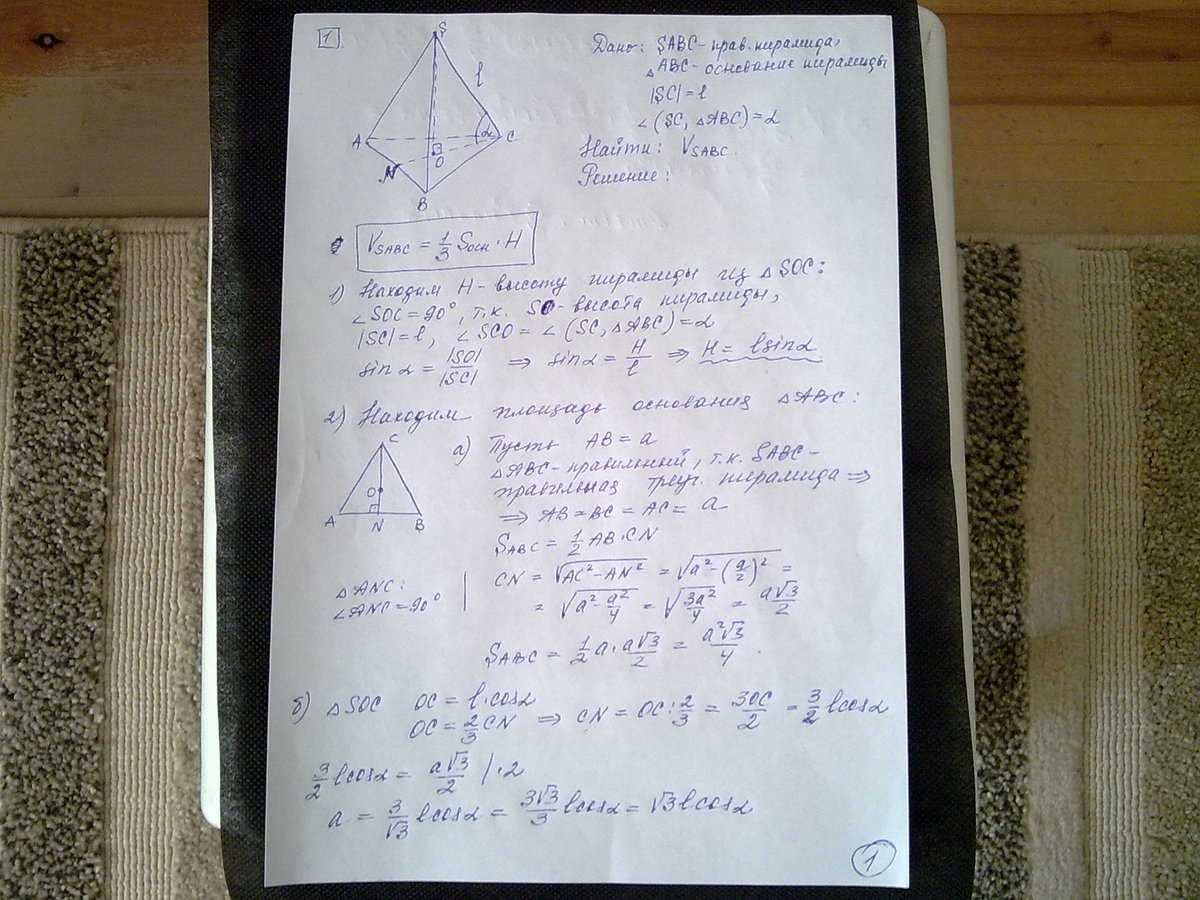 1
S
l
A
α
C
O
N
B
Дано: SABC - прав. пирамида,
△ABC - основание пирамиды
|SC| = l
∠(SC, △ABC) = α
Найти: V_SABC.
Решение:
V_SABC = 1/3 S_осн · H
1) Находим H - высоту пирамиды из △SOC:
∠SOC = 90°, т.к. SO - высота пирамиды,
|SC| = l, ∠SCO = ∠(SC, △ABC) = α
sin α = |SO|/|SC| ⇒ sin α = H/l ⇒ H = l sin α
2) Находим площадь основания △ABC:
C
O
A N B
а) Пусть AB = a
△ABC - правильный, т.к. SABC -
правильная треуг. пирамида ⇒
⇒ AB = BC = AC = a
S_ABC = 1/2 AB · CN
△ANC:
∠ANC = 90°
CN = √(AC² - AN²) = √(a² - (a/2)²) =
= √(a² - a²/4) = √(3a²/4) = a√3/2
S_ABC = 1/2 a · a√3/2 = a²√3/4.
б) △SOC OC = l · cos α
OC = 2/3 CN ⇒ CN = OC : 2/3 = 3OC/2 = 3/2 l cos α
3/2 l cos α = a√3/2 | · 2
a = 3/√3 l cos α = 3√3/3 l cos α = √3 l cos α
1